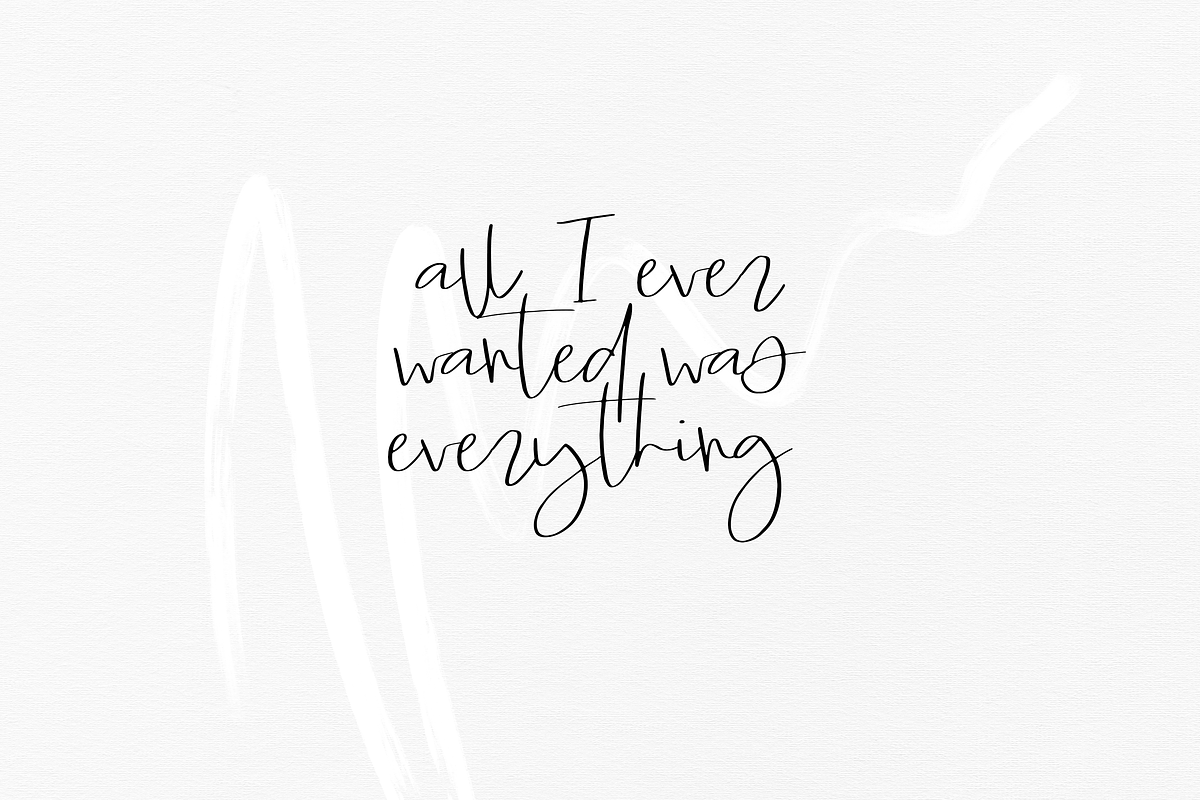 all I ever
wanted was
everything